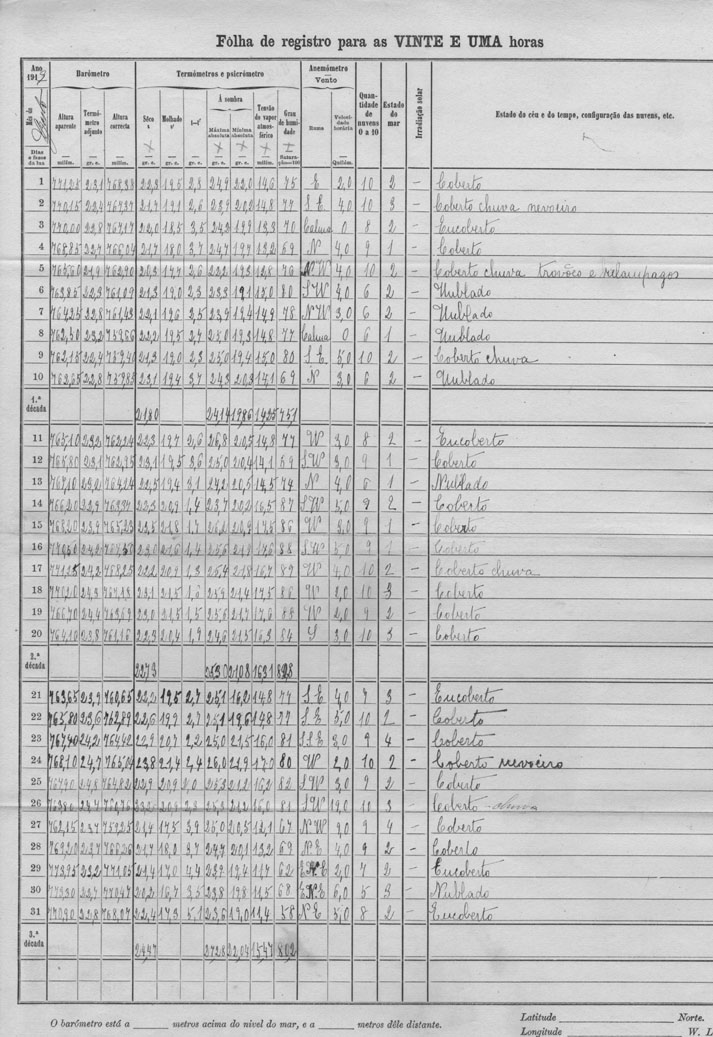 Fôlha de registro para as VINTE E UMA horas
Ano 191
Barómetro
Termómetros e psicrómetro
Anemómetro — Vento
Quantidade de nuvens 0 a 10
Estado do mar
Irradiação solar
Estado do céu e do tempo, configuração das nuvens, etc.
Mês de
Dias e fases da lua
Altura aparente — milím.
Termómetro adjunto — gr. c.
Altura correcta — milím.
Sêco — gr. c.
Molhado — gr. c.
gr. c.
Á sombra
Máxima absoluta — gr. c.
Mínima absoluta — gr. c.
Tensão do vapor atmosférico — milím.
Grau de humidade — Saturação=100
Rumo
Velocidade horária — Quilóm.
1 771,25 23,1 768,38 22,3 19,5 2,8 24,9 22,0 14,6 75 E 2,0 10 2 — Coberto
2 22,4 21,7 19,1 2,6 23,9 20,2 14,8 77 S E 4,0 10 3 — Coberto chuva nevoeiro
3 770,00 22,8 22,0 18,5 3,5 24,2 19,9 13,3 70 Calma 0 8 2 — Encoberto
4 768,85 22,7 766,04 21,7 18,0 3,7 24,7 19,7 13,2 69 N 4,0 9 1 — Coberto
5 765,60 21,9 762,90 20,3 17,7 2,6 22,2 19,3 12,8 76 N W 4,0 10 2 — Coberto chuva trovões e relampagos
6 763,85 22,3 761,09 21,3 19,0 2,3 23,3 19,1 15,0 80 S W 4,0 6 2 — Nublado
7 764,25 22,8 761,43 22,1 19,6 2,5 23,9 19,4 14,9 78 N W 3,0 6 2 — Nublado
8 762,50 23,2 22,2 19,5 2,7 25,0 19,3 14,8 77 Calma 0 6 1 — Nublado
9 762,15 22,4 759,40 21,3 19,0 2,3 25,0 19,4 15,0 80 S E 5,0 10 2 — Coberto chuva
10 762,65 22,8 759,83 23,1 19,4 3,7 24,3 20,3 14,1 69 N 3,0 6 2 — Nublado
1.ª década 21,80 24,14 19,86 14,25 75,1
11 765,10 23,2 762,24 22,3 19,7 2,6 26,8 20,5 14,8 77 W 3,0 8 2 — Encoberto
12 765,80 23,1 762,95 23,1 19,5 3,6 25,0 20,4 14,1 69 S W 3,0 9 1 — Coberto
13 767,10 23,0 764,24 22,5 19,4 3,1 24,2 20,5 14,5 74 N 4,0 6 1 — Nublado
14 766,20 22,9 22,3 20,9 1,4 23,7 20,2 16,5 87 S W 5,0 9 2 — Coberto
15 23,9 21,8 1,7 20,9 17,5 86 W 2,0 9 1 — Coberto
16 24,2 23,0 21,6 1,4 25,6 17,6 88 S W 5,0 9 1 — Coberto
17 24,2 768,25 22,2 20,9 1,3 25,4 21,8 16,7 87 W 4,0 10 2 — Coberto chuva
18 24,3 23,1 21,5 1,6 21,4 17,5 86 W 2,0 10 3 — Coberto
19 766,70 24,4 763,69 23,0 21,5 1,5 25,6 21,7 17,6 88 W 2,0 9 2 — Coberto
20 764,10 23,8 761,16 22,3 20,4 1,9 24,6 21,5 16,3 84 S 3,0 10 3 — Coberto
2.ª década 22,73 25,30 21,08 16,31 82,8
21 763,65 23,9 760,65 22,2 19,5 2,7 25,1 16,2 14,8 77 S E 4,0 7 3 — Encoberto
22 765,80 23,6 762,89 22,6 19,9 2,7 25,1 19,6 14,8 77 S E 5,0 10 2 — Coberto
23 767,40 24,2 764,42 22,9 20,7 2,2 25,0 21,5 16,0 81 S S E 3,0 9 4 — Coberto
24 768,10 24,7 765,04 23,8 21,4 2,4 26,0 21,9 17,0 80 W 2,0 10 2 — Coberto nevoeiro
25 767,90 24,8 764,82 22,9 20,9 2,0 25,3 21,2 16,2 82 S W 3,0 9 2 — Coberto
26 16,0 81 S W 19,0 10 3 — Coberto chuva
27 762,15 23,7 759,25 21,4 17,5 3,9 25,0 20,5 12,1 67 N W 9,0 9 4 — Coberto
28 769,20 23,7 766,26 21,7 18,0 3,7 24,7 20,1 13,2 69 N E 4,0 9 2 — Coberto
29 773,95 23,2 771,05 21,4 17,0 4,4 23,7 19,4 11,7 62 2,0 7 2 — Encoberto
30 22,7 20,2 16,7 3,5 23,8 19,8 11,5 68 E N E 6,0 5 3 — Nublado
31 770,90 22,8 768,07 22,4 17,3 5,1 23,6 19,0 11,4 58 N E 5,0 8 2 — Encoberto
3.ª década 24,47 27,28 22,04 15,47 80,2
O barómetro está a metros acima do nivel do mar, e a metros dêle distante.
Latitude Norte.
Longitude W. L